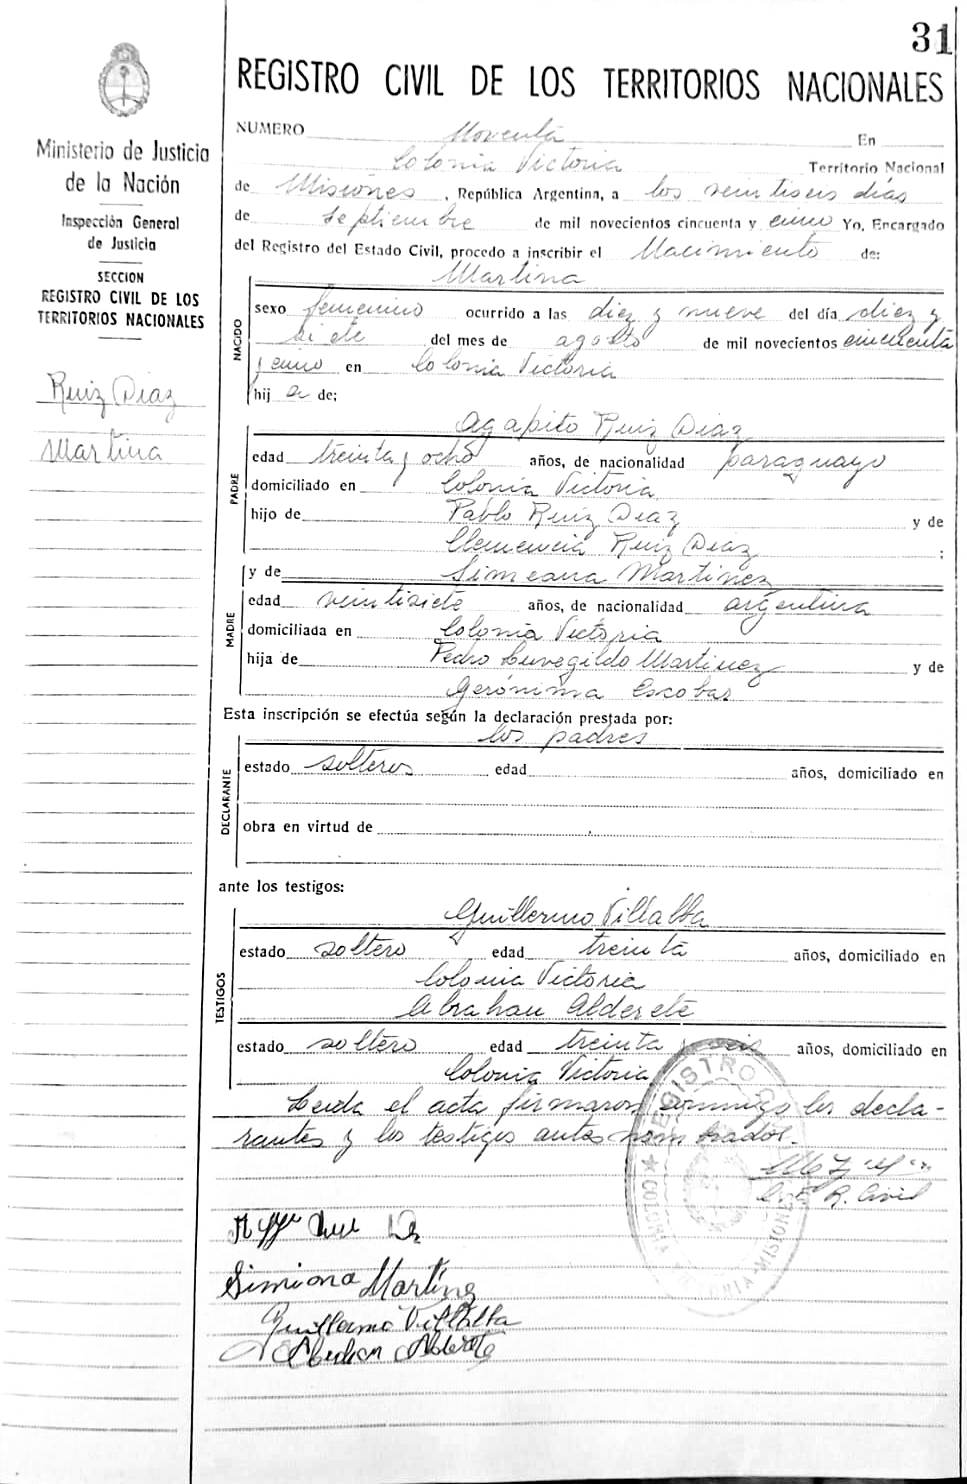 31
REGISTRO CIVIL DE LOS TERRITORIOS NACIONALES
Ministerio de Justicia
de la Nación
Inspección General
de Justicia
SECCION
REGISTRO CIVIL DE LOS
TERRITORIOS NACIONALES
Ruiz Diaz
Martina
NUMERO Noventa En
Colonia Victoria Territorio Nacional
de Misiones, República Argentina, a los veintiseis días
de septiembre de mil novecientos cincuenta y cinco Yo, Encargado
del Registro del Estado Civil, procedo a inscribir el Nacimiento de:
NACIDO
Martina
sexo femenino ocurrido a las diez y nueve del día diez y
siete del mes de agosto de mil novecientos cincuenta
y cinco en Colonia Victoria
hij a de;
PADRE
Agapito Ruiz Diaz
edad treinta y ocho años, de nacionalidad paraguayo
domiciliado en Colonia Victoria
hijo de Pablo Ruiz Diaz y de
Clemencia Ruiz Diaz ;
MADRE
y de Simeana Martinez
edad veintisiete años, de nacionalidad argentina
domiciliada en Colonia Victoria
hija de Pedro Martinez y de
Gerónima Escobar
Esta inscripción se efectúa según la declaración prestada por:
DECLARANTE
los padres
estado solteros edad años, domiciliado en
obra en virtud de
ante los testigos:
TESTIGOS
Guillermo Villalba
estado soltero edad treinta años, domiciliado en
Colonia Victoria
Abrahan Alderete
estado soltero edad treinta y seis años, domiciliado en
Colonia Victoria
Leida el acta firmaron conmigo los decla-
rantes y los testigos antes nombrados.
R. Civil
REGISTRO
VICTORIA
MISIONES
Simiona Martinez
Guillermo Villalba